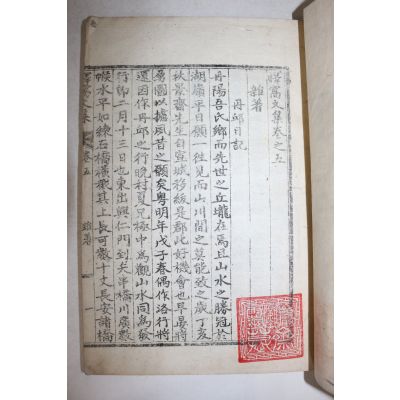 寓文集卷之五
雜著
丹邱日記
丹陽吾氏鄉而先世之丘壠在焉且山水之勝冠於
湖嶺平日願一往見而山川間之莫能致之歲丁亥
秋景齋先生自宣城移綬是郡此好機會也早晏將
圖以攄夙昔之願矣粤明年戊子春偶作洛行將
還因作丹邱之行晩村夏兄極中爲觀山水同爲發
行卽二月十三日也東出興仁門到矢串橋川廣數
帿水平如練石橋橫截其上長可數十丈長安諸橋
卷五
雜著
一